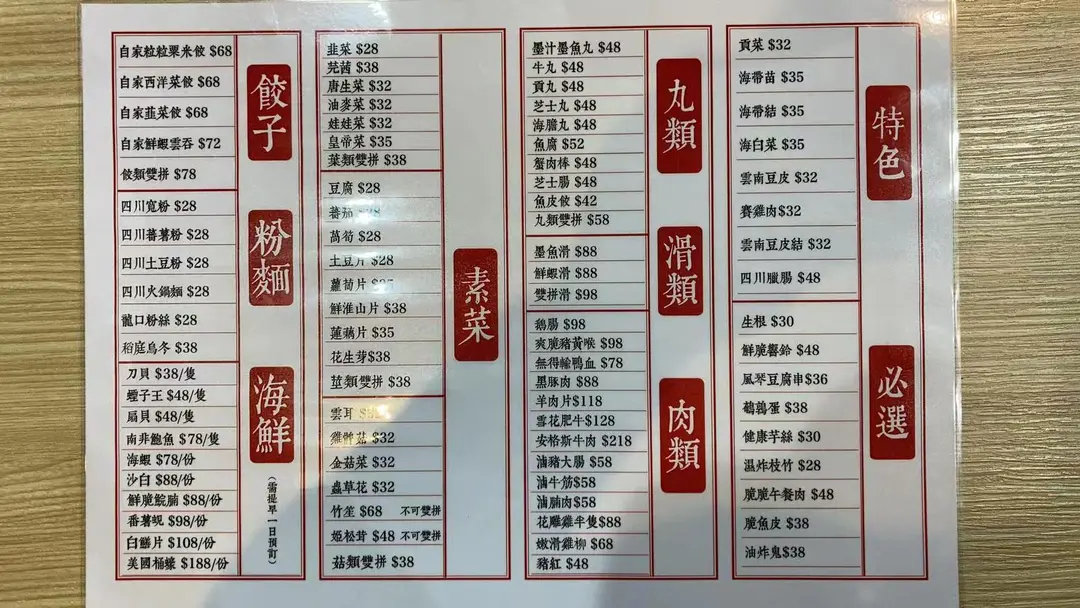 餃子
自家粒粒粟米餃 $68
自家西洋菜餃 $68
自家韮菜餃 $68
自家鮮蝦雲吞 $72
餃類雙拼 $78
粉麵
四川寬粉 $28
四川蕃薯粉 $28
四川土豆粉 $28
四川火鍋麵 $28
龍口粉絲 $28
稻庭烏冬 $38
海鮮
(需提早一日預訂)
刀貝 $38/隻
蟶子王 $48/隻
扇貝 $48/隻
南非鮑魚 $78/隻
海蝦 $78/份
沙白 $88/份
鮮脆鯇腩 $88/份
番薯蜆 $98/份
白鱔片 $108/份
美國桶蠔 $188/份
素菜
韭菜 $28
芫茜 $38
唐生菜 $32
油麥菜 $32
娃娃菜 $32
皇帝菜 $35
葉類雙拼 $38
豆腐 $28
蕃茄
萵筍 $28
土豆片 $28
蘿蔔片
鮮淮山片 $38
蓮藕片 $35
花生芽$38
莖類雙拼 $38
雲耳
雞髀菇 $32
金菇菜 $32
蟲草花 $32
竹笙 $68 不可雙拼
姬松茸 $48 不可雙拼
菇類雙拼 $38
丸類
墨汁墨魚丸 $48
牛丸 $48
貢丸 $48
芝士丸 $48
海膽丸 $48
魚腐 $52
蟹肉棒 $48
芝士腸 $48
魚皮餃 $42
丸類雙拼 $58
滑類
墨魚滑 $88
鮮蝦滑 $88
雙拼滑 $98
肉類
鵝腸 $98
爽脆豬黃喉 $98
無得輸鴨血 $78
黑豚肉 $88
羊肉片$118
雪花肥牛$128
安格斯牛肉 $218
滷豬大腸 $58
滷牛筋$58
滷腩肉$58
花雕雞半隻$88
嫩滑雞柳 $68
豬紅 $48
特色
貢菜 $32
海帶苗 $35
海帶結 $35
海白菜 $35
雲南豆皮 $32
賽雞肉$32
雲南豆皮結 $32
四川臘腸 $48
必選
生根 $30
鮮脆響鈴 $48
風琴豆腐串$36
鵪鶉蛋 $38
健康芋絲 $30
濕炸枝竹 $28
脆脆午餐肉 $48
脆魚皮 $38
油炸鬼$38